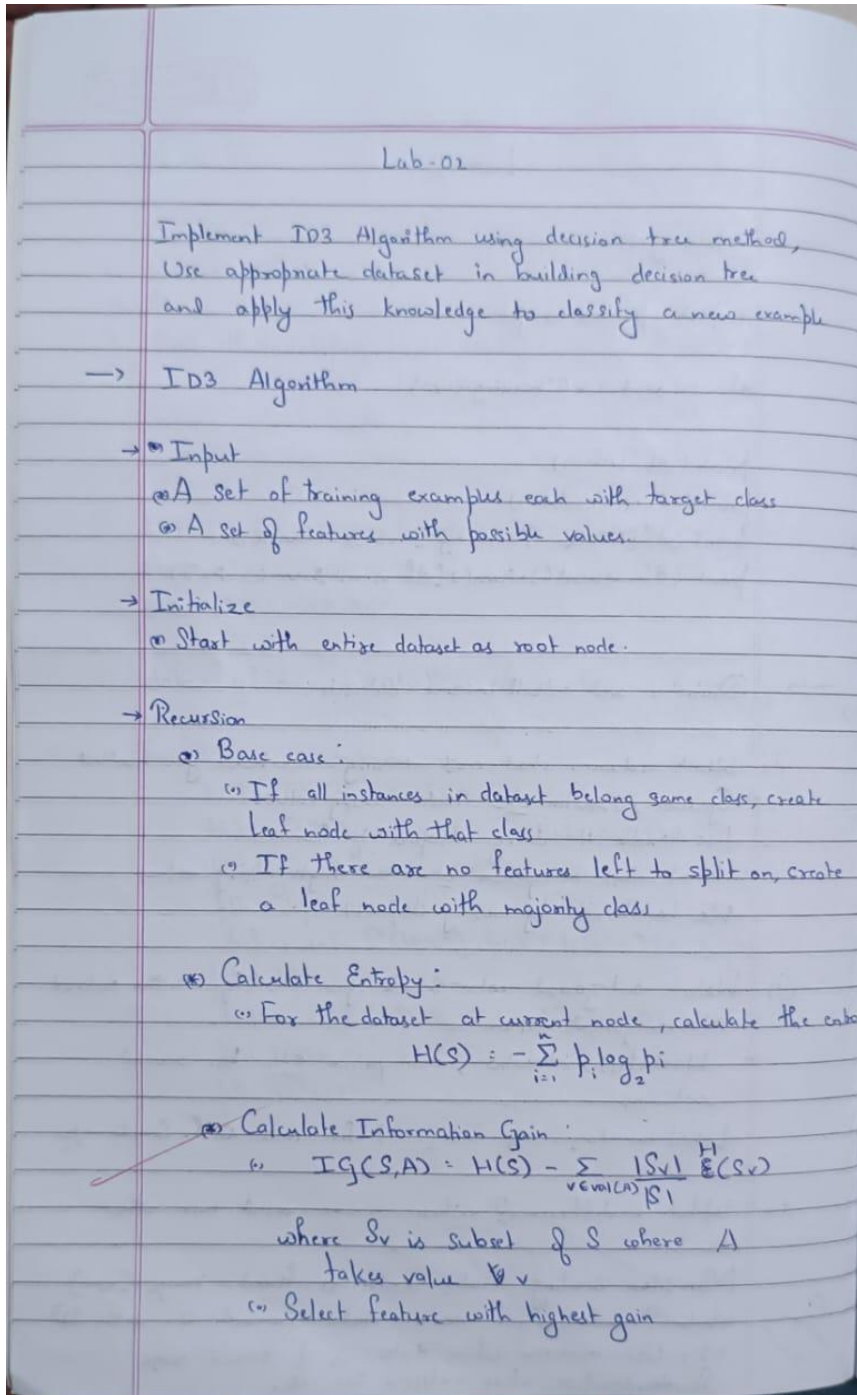 Lab-02
Implement ID3 Algorithm using decision tree method,
Use appropriate dataset in building decision tree
and apply this knowledge to classify a new example
→ ID3 Algorithm
→ Input
A set of training examples each with target class
A set of features with possible values.
→ Initialize
Start with entire dataset as root node.
→ Recursion
Base case:
If all instances in dataset belong same class, create
leaf node with that class
If there are no features left to split on, create
a leaf node with majority class
Calculate Entropy:
For the dataset at current node, calculate the
H(S) = - Σ_{i=1}^{n} p_i log_2 p_i
Calculate Information Gain:
IG(S,A) = H(S) - Σ_{v∈val(A)} |Sv|/|S| H(Sv)
where Sv is subset of S where A
takes value v
Select feature with highest gain